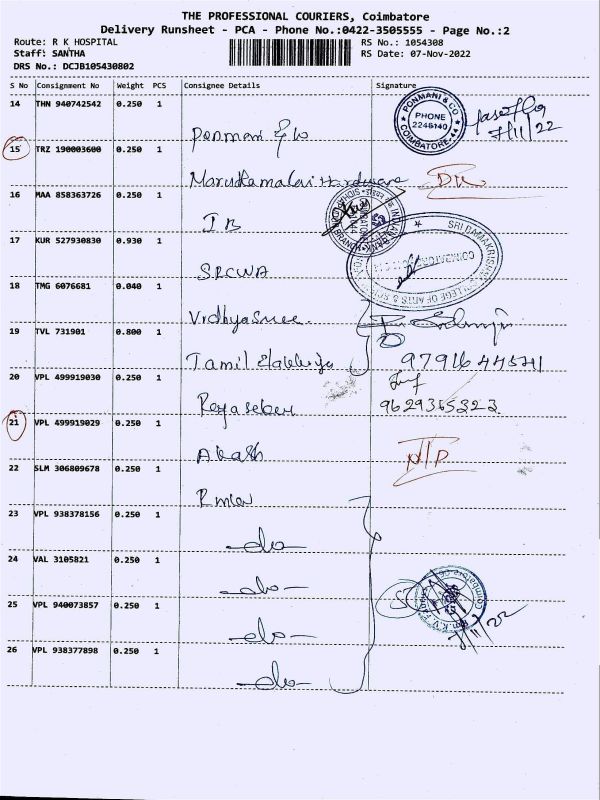 THE PROFESSIONAL COURIERS, Coimbatore
Delivery Runsheet - PCA - Phone No.:0422-3505555 - Page No.:2
Route: R K HOSPITAL
Staff: SANTHA
DRS No.: DCJB105430802
RS No.: 1054308
RS Date: 07-Nov-2022
S No Consignment No Weight PCS Consignee Details Signature
14 THN 940742542 0.250 1
PONMANI & CO
PHONE
2246140
COIMBATORE-44
7/11/22
Ponmani & co
15 TRZ 190003600 0.250 1
Marudhamalai Hardware
16 MAA 858363726 0.250 1
IB
INDIAN BANK
17 KUR 527930830 0.930 1
SRCWA
SRI RAMAKRISHNA COLLEGE OF ARTS &
18 TMG 6076681 0.040 1
Vidhyasree
19 TVL 731901 0.800 1
Tamil
9791644541
20 VPL 499919030 0.250 1
9629365323
21 VPL 499919029 0.250 1
Akash
22 SLM 306809678 0.250 1
23 VPL 938378156 0.250 1
-do-
24 VAL 3105821 0.250 1
-do-
25 VPL 940073857 0.250 1
-do-
26 VPL 938377898 0.250 1
-do-